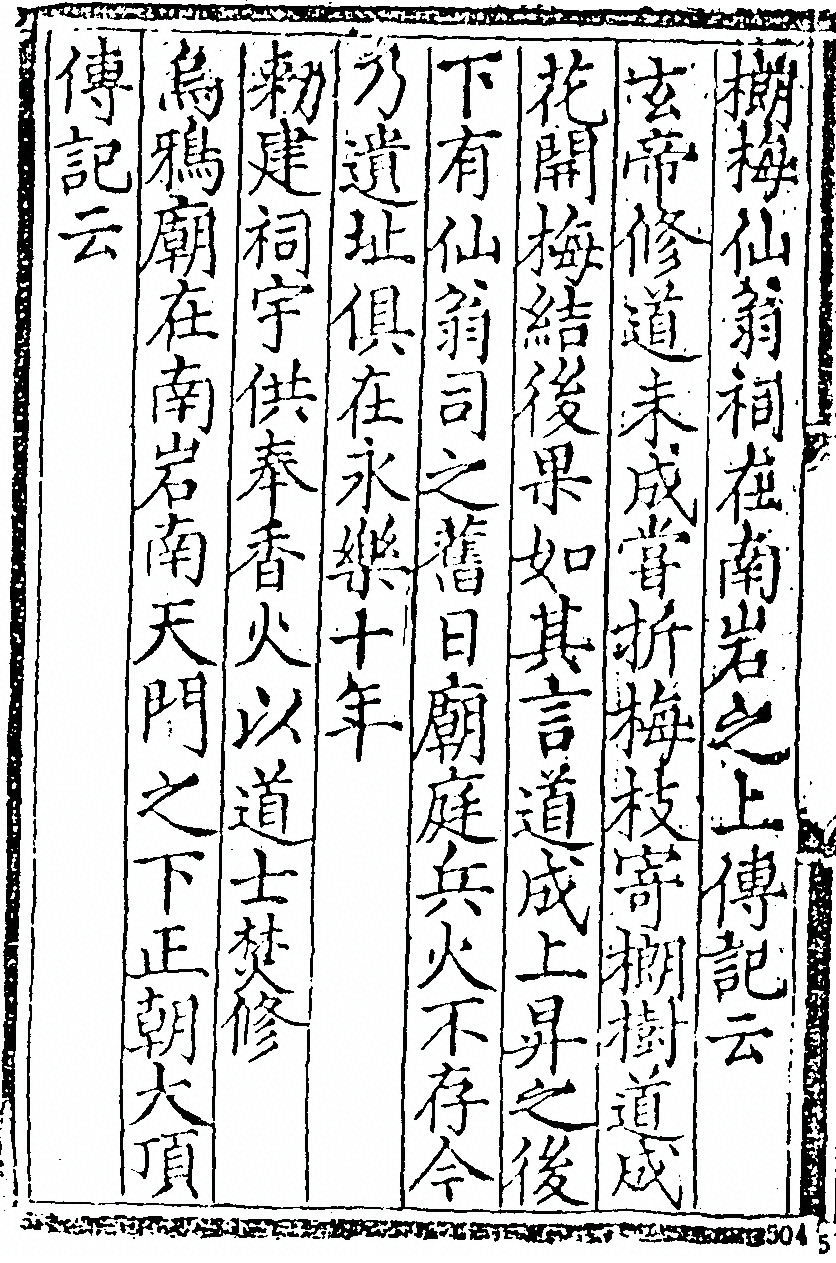 榔梅仙翁祠在南岩之上傳記云
玄帝修道未成嘗折梅枝寄榔樹道成
花開梅結後果如其言道成上昇之後
下有仙翁司之舊日廟庭兵火不存今
乃遺址俱在永樂十年
敕建祠宇供奉香火以道士焚修
烏鴉廟在南岩南天門之下正朝大頂
傳記云
504
5